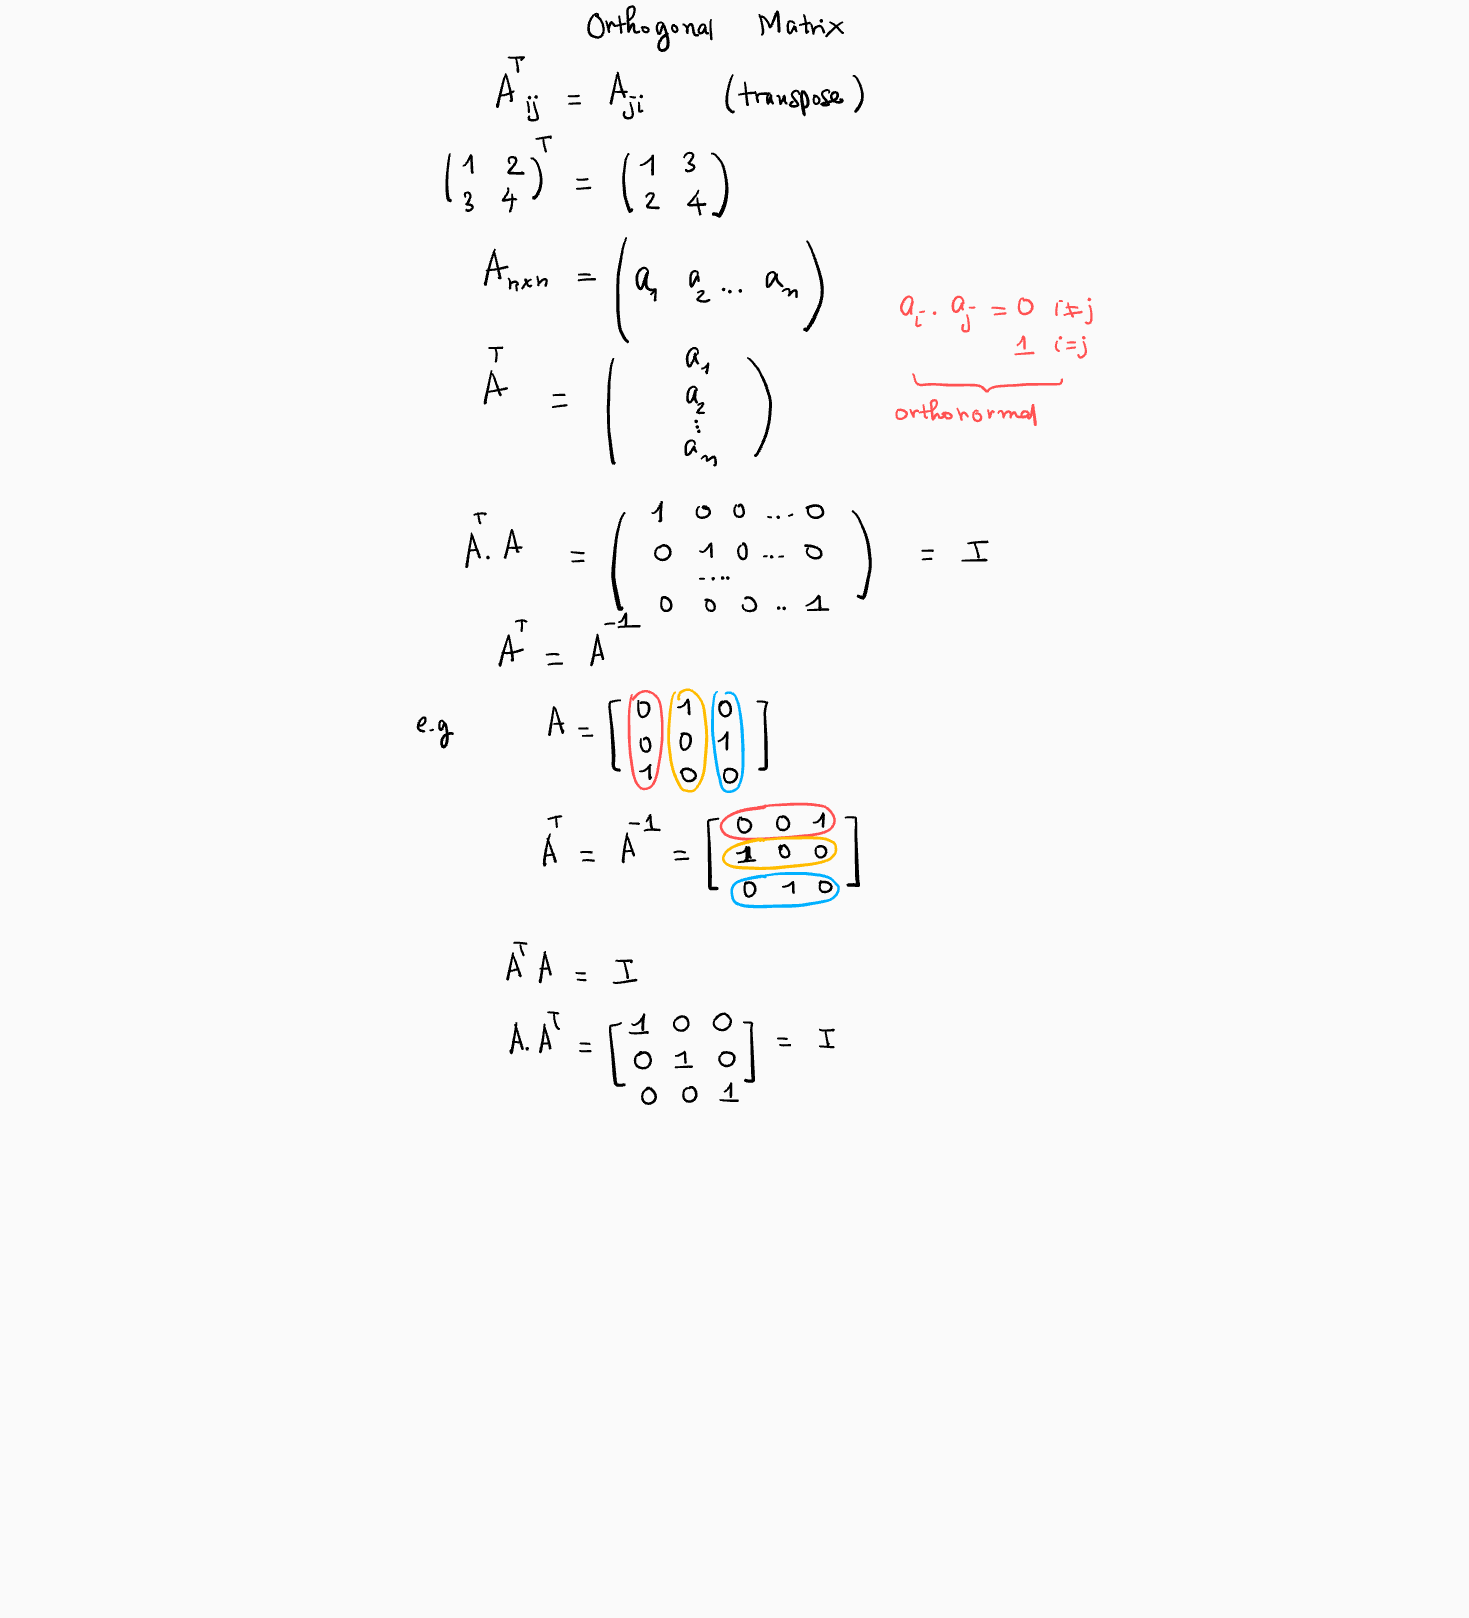 Orthogonal Matrix
Aᵀij = Aji (transpose)
(1 2
3 4)ᵀ = (1 3
2 4)
Aₙₓₙ = (a₁ a₂ ... aₙ)
ai . aj = 0 i≠j
1 i=j
orthonormal
Aᵀ = (a₁
a₂
⋮
aₙ)
Aᵀ. A = (1 0 0 .... 0
0 1 0 ... 0
.....
0 0 0 .. 1) = I
Aᵀ = A⁻¹
e.g A = [0 1 0
0 0 1
1 0 0]
Aᵀ = A⁻¹ = [0 0 1
1 0 0
0 1 0]
AᵀA = I
A.Aᵀ = [1 0 0
0 1 0
0 0 1] = I